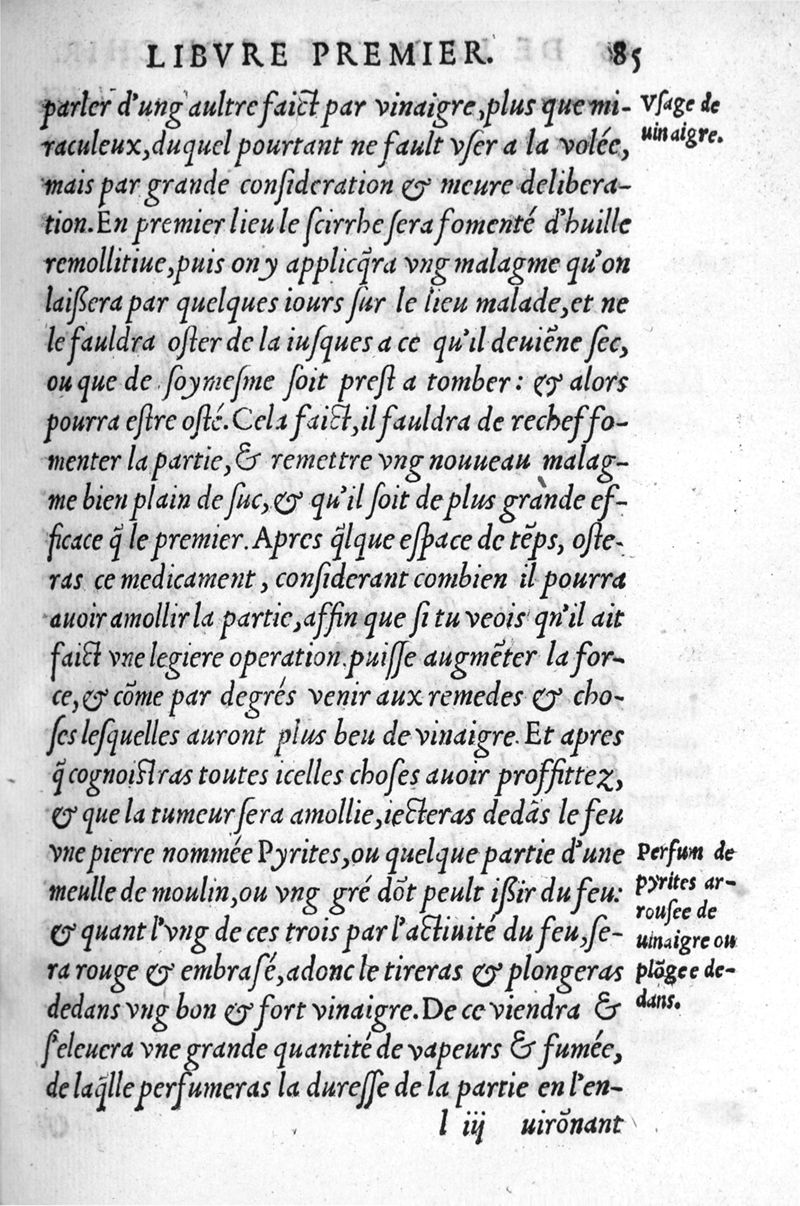 LIBVRE PREMIER. 85
parler d'ung aultre faict par vinaigre, plus que mi-
raculeux, duquel pourtant ne fault vſer a la volée,
mais par grande conſideration & meure delibera-
tion. En premier lieu le ſcirrhe ſera fomenté d'huille
remollitiue, puis on y applicq̃ra vng malagme qu'on
laißera par quelques iours ſur le lieu malade, et ne
le fauldra oſter de la iuſques a ce qu'il deuiẽne ſec,
ou que de ſoymeſme ſoit preſt a tomber: & alors
pourra eſtre oſté. Cela faict, il fauldra de rechef fo-
menter la partie, & remettre vng nouueau malag-
me bien plain de ſuc, & qu'il ſoit de plus grande ef-
ficace q̃ le premier. Apres q̃lque eſpace de tẽps, oſte-
ras ce medicament, conſiderant combien il pourra
auoir amollir la partie, affin que ſi tu veois qn'il ait
faict vne legiere operation. puiſſe augmẽter la for-
ce, & cõme par degrés venir aux remedes & cho-
ſes leſquelles auront plus beu de vinaigre. Et apres
q̃ cognoiſtras toutes icelles choſes auoir proffittez,
& que la tumeur ſera amollie, iecteras dedãs le feu
vne pierre nommée Pyrites, ou quelque partie d'une
meulle de moulin, ou vng gré dõt peult ißir du feu:
& quant l'vng de ces trois par l'actiuité du feu, ſe-
ra rouge & embraſé, adonc le tireras & plongeras
dedans vng bon & fort vinaigre. De ce viendra &
ſeleuera vne grande quantité de vapeurs & fumée,
de laq̃lle perfumeras la dureſſe de la partie en l'en-
l iij uirõnant
Vſage de
uinaigre.
Perfum de
pyrites ar-
rouſee de
uinaigre ou
plõgee de-
dans.